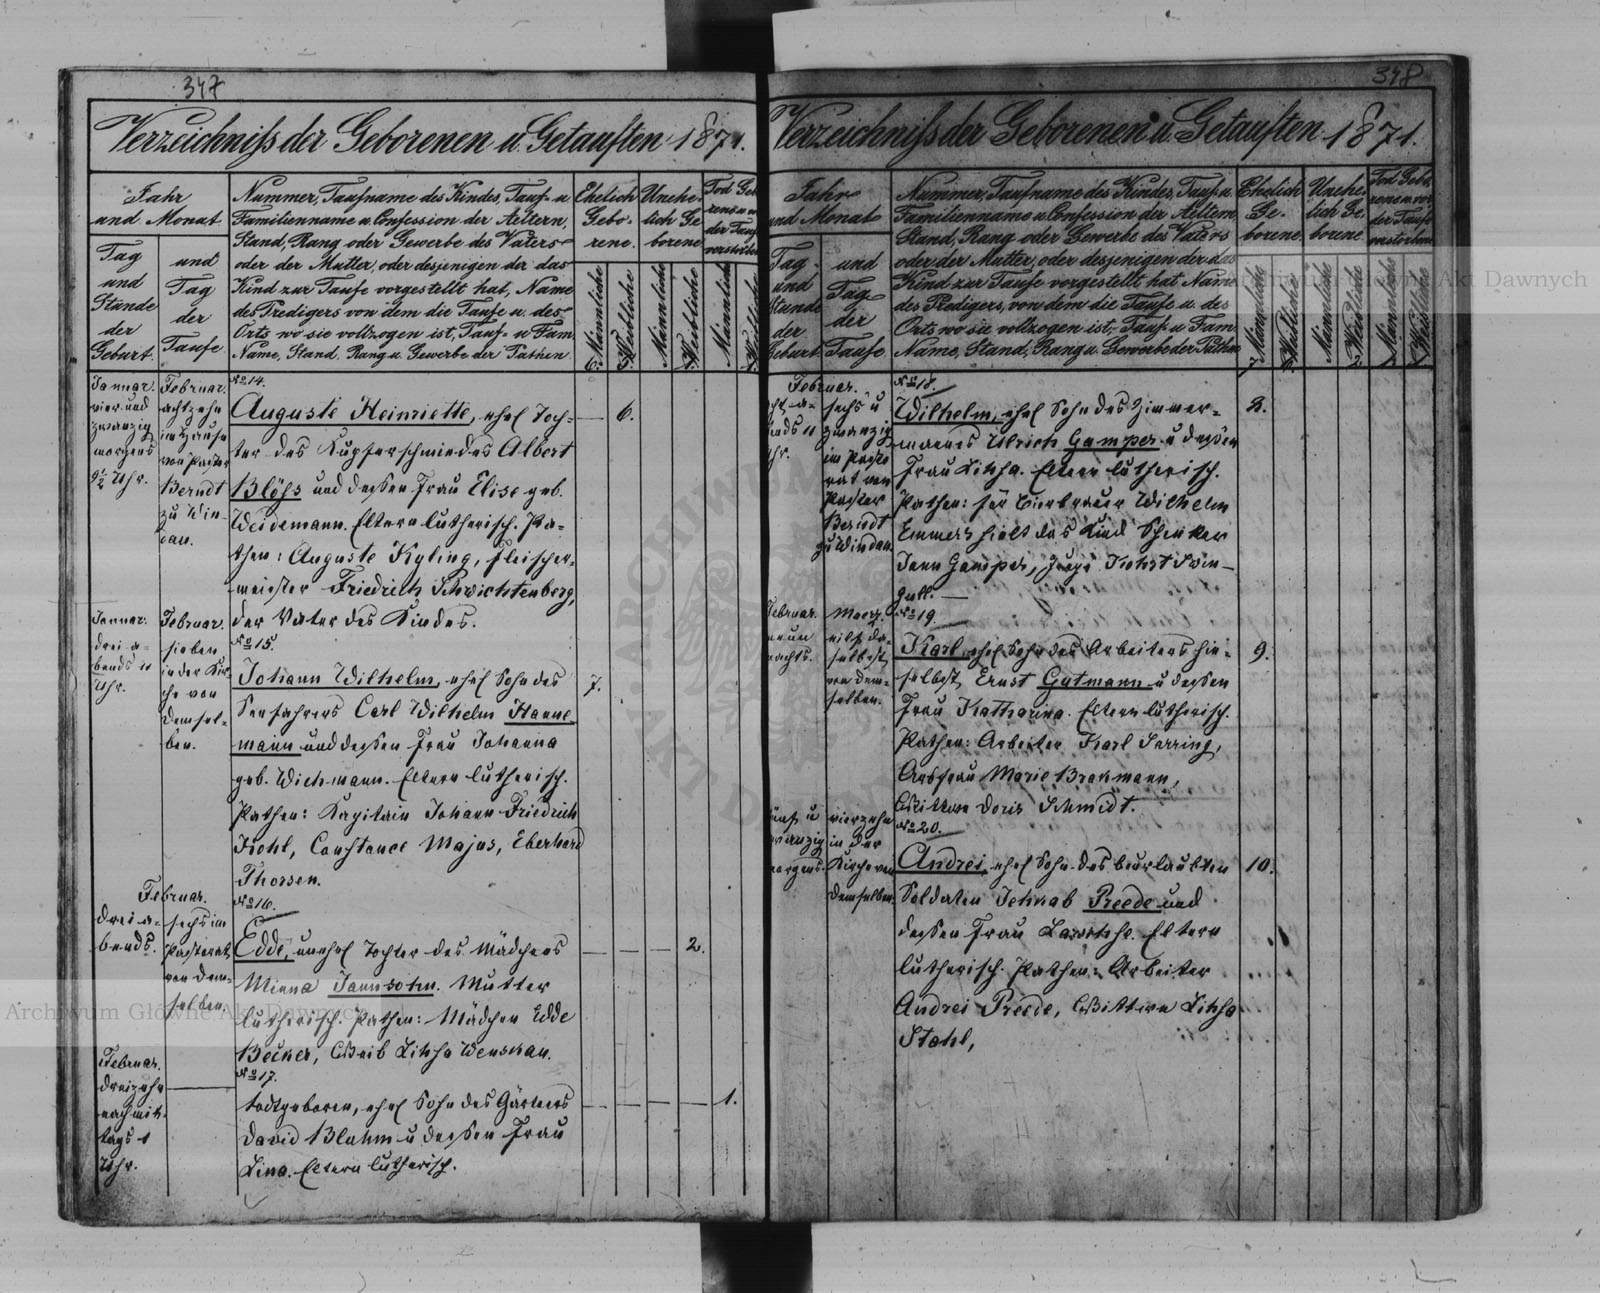 347
Verzeichniſs der Geborenen u. Getauften 1871.
Jahr
und Monat
Tag
und
Stunde
der
Geburt.
und
Tag
der
Taufe
Nummer, Taufname des Kindes, Tauf- u
Familienname u. Confession der Aeltern,
Stand, Rang oder Gewerbe des Vaters
oder der Mutter, oder desjenigen der das
Kind zur Taufe vorgestellt hat, Name
des Predigers von dem die Taufe u. des
Orts wo sie vollzogen ist, Tauf- u Fam
Name, Stand, Rang u. Gewerbe der Pathen.
Ehelich
Gebo-
rene.
Unehe-
lich Ge
borene
Tod Geb
rene u. v
der Tauf
verstorben
Männliche
Weibliche
Männliche
Weibliche
Männliche
Weibliche
6.
5.
1.
Januar.
vier und
zwanzig
morgens
9½ Uhr.
Februar.
achtzehn
im Hause
von Pastor
Berndt
zu Win-
dau.
No 14.
Auguste Heinriette, ehel Toch-
ter des Kupferschmiedes Albert
Blöſs und dessen Frau Elise geb.
Weidemann. Eltern lutherisch. Pa-
then: Auguste Kyling, Fleischer-
meister Friedrich Schwichtenberg,
der Vater des Kindes.
6.
Januar.
drei a-
bends 11
Uhr.
Februar.
sieben
in der Kir-
che von
demsel-
ben.
No 15.
Johann Wilhelm, ehel Sohn des
Seefahrers Carl Wilhelm Hanne
mann und dessen Frau Johanna
geb. Wichmann. Eltern lutherisch.
Pathen: Kapitain Johann Friedrich
Kohl, Constance Majus, Eberhard
Thorsen.
7.
Februar.
drei a-
bends.
sechs im
Pastorat
von dem-
selben.
No 16.
Edde, unehel Tochter des Mädchens
Minna Jannsohn. Mutter
lutherisch. Pathen: Mädchen Edde
Becker, Weib Lihsa Wenskau.
2.
Februar.
dreizehn
nachmit-
tags 1
Uhr.
No 17.
todtgeboren, ehel Sohn des Gärtners
David Bluhm u dessen Frau
Lina. Eltern lutherisch.
1.
348
Verzeichniſs der Geborenen u. Getauften 1871.
Jahr
und Monat
Tag
und
Stunde
der
Geburt
und
Tag
der
Taufe
Nummer, Taufname des Kindes, Tauf- u.
Familienname u. Confession der Aeltern,
Stand, Rang oder Gewerbe des Vaters
oder der Mutter, oder desjenigen der das
Kind zur Taufe vorgestellt hat, Name
des Predigers, von dem die Taufe u. des
Orts wo sie vollzogen ist, Tauf- u Fam.
Name, Stand, Rang u. Gewerbe der Pathen
Ehelich
Ge-
borene.
Unehe-
lich Ge-
borene.
Tod Gebo-
rene u. vor
der Taufe
verstorbene
Männliche
Weibliche
Männliche
Weibliche
Männliche
Weibliche
7.
6.
2.
1.
Februar.
acht a-
bends 11
Uhr.
sechs u
zwanzig
im Pasto
rat von
Pastor
Berndt
zu Windau.
No 18.
Wilhelm, ehel Sohn des Zimmer-
manns Ulrich Gamper u dessen
Frau Lihsa. Eltern lutherisch.
Pathen: für Bierbrauer Wilhelm
Emmers hielt das Kind Schenker
Jann Gamper, Kohrt Swin-
gull.
8.
Februar.
neun
nachts.
Maerz.
eilf da-
selbst
von dem-
selben.
No 19.
Karl, ehel Sohn des Arbeiters hie-
selbst, Ernst Gutmann u dessen
Frau Katharina. Eltern lutherisch.
Pathen: Arbeiter Karl Sarring,
Arbfrau Marie Brakmann,
Wittwe Doris Schmidt.
9.
fünf u
zwanzig
morgens.
vierzehn
in der
Kirche von
demselben.
No 20.
Andrei, ehel Sohn des beurlaubten
Soldaten Jehkab Preede und
dessen Frau Lawihse. Eltern
lutherisch. Pathen: Arbeiter
Andrei Preede, Wittwe Lihsa
Stahl,
10.
Archiwum Główne Akt Dawnych
Archiwum Główne Akt Dawnych